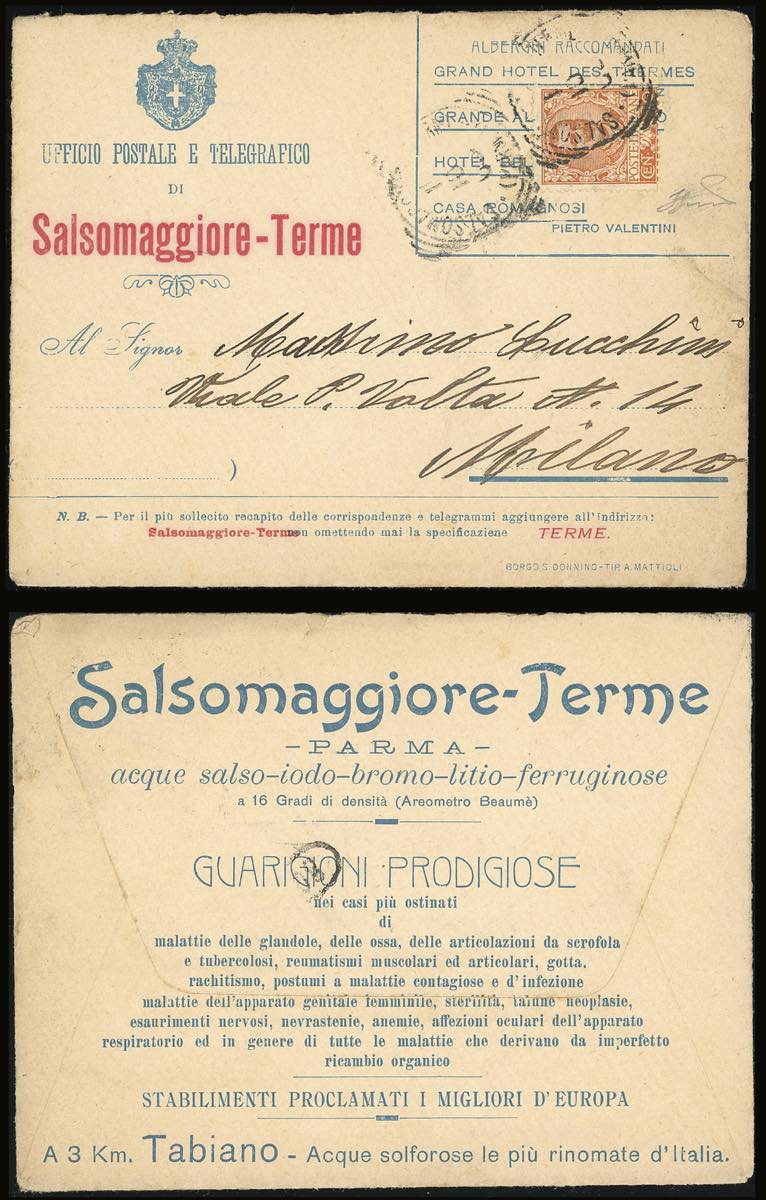 ALBERGHI RACCOMANDATI
GRAND HOTEL DES THERMES
GRANDE AL
HOTEL BEL
CASA ROMAGNOSI
PIETRO VALENTINI
POSTE
CEN
UFFICIO POSTALE E TELEGRAFICO
DI
Salsomaggiore-Terme
Al Signor Massimo Lucchini
Viale P. Volta N. 14
Milano
)
N. B. — Per il più sollecito recapito delle corrispondenze e telegrammi aggiungere all'indirizzo:
Salsomaggiore-Terme non omettendo mai la specificazione TERME.
BORGO S. DONNINO-TIP. A. MATTIOLI
Salsomaggiore-Terme
- PARMA -
acque salso-iodo-bromo-litio-ferruginose
a 16 Gradi di densità (Areometro Beaumè)
GUARIGIONI PRODIGIOSE
nei casi più ostinati
di
malattie delle glandole, delle ossa, delle articolazioni da scrofola
e tubercolosi, reumatismi muscolari ed articolari, gotta,
rachitismo, postumi a malattie contagiose e d'infezione
malattie dell'apparato genitale femminile, sterilità, talune neoplasie,
esaurimenti nervosi, nevrastenie, anemie, affezioni oculari dell'apparato
respiratorio ed in genere di tutte le malattie che derivano da imperfetto
ricambio organico
STABILIMENTI PROCLAMATI I MIGLIORI D'EUROPA
A 3 Km. Tabiano - Acque solforose le più rinomate d'Italia.